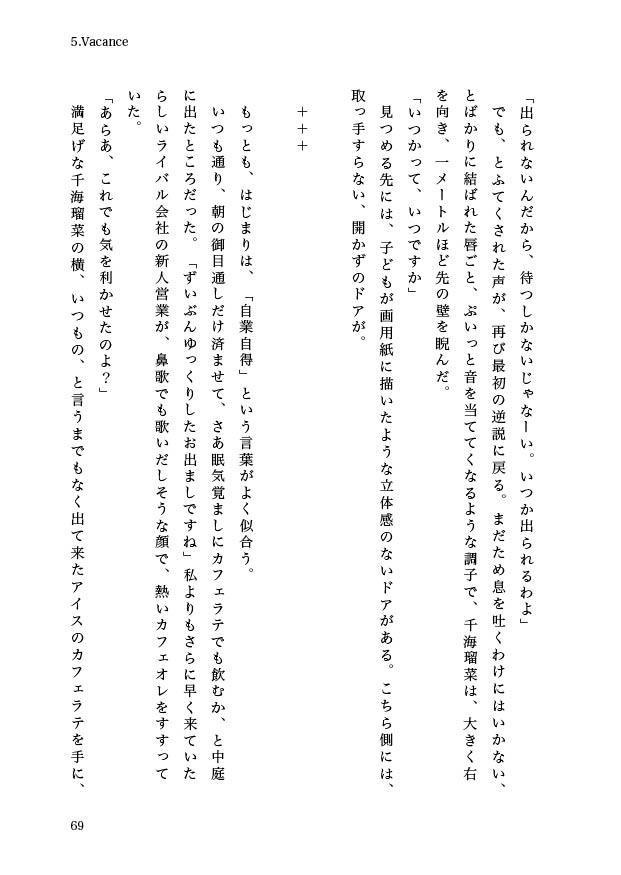 5.Vacance
「出られないんだから、待つしかないじゃなーい。いつか出られるわよ」
でも、とふてくされた声が、再び最初の逆説に戻る。まだため息を吐くわけにはいかない、
とばかりに結ばれた唇ごと、ぷいっと音を当ててくなるような調子で、千海瑠菜は、大きく右
を向き、一メートルほど先の壁を睨んだ。
「いつかって、いつですか」
見つめる先には、子どもが画用紙に描いたような立体感のないドアがある。こちら側には、
取っ手すらない、開かずのドアが。
+++
もっとも、はじまりは、「自業自得」という言葉がよく似合う。
いつも通り、朝の御目通しだけ済ませて、さあ眠気覚ましにカフェラテでも飲むか、と中庭
に出たところだった。「ずいぶんゆっくりしたお出ましですね」私よりもさらに早く来ていた
らしいライバル会社の新人営業が、鼻歌でも歌いだしそうな顔で、熱いカフェオレをすすって
いた。
「あらあ、これでも気を利かせたのよ?」
満足げな千海瑠菜の横、いつもの、と言うまでもなく出て来たアイスのカフェラテを手に、
69